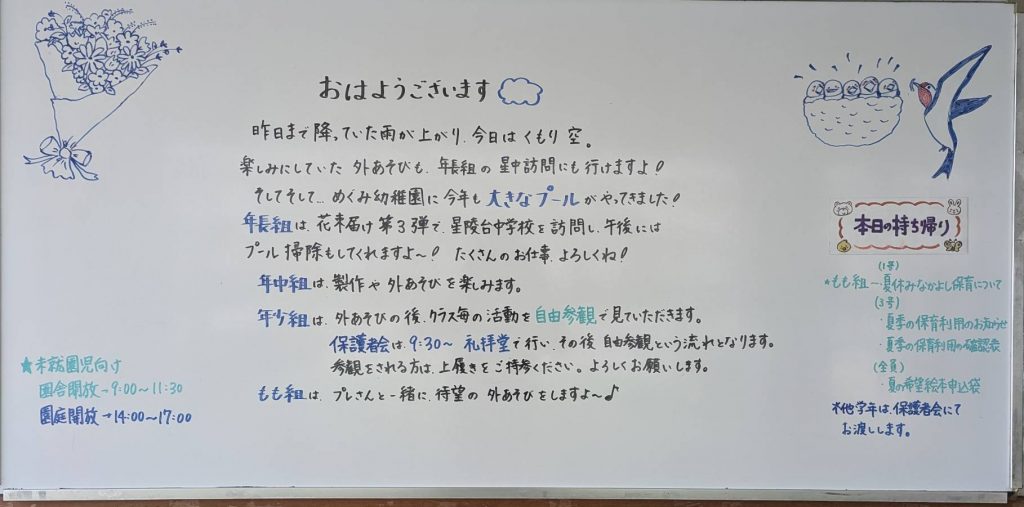 おはようございます
昨日まで降っていた雨が上がり、今日は くもり 空。
楽しみにしていた 外あそびも、年長組の 星中訪問にも 行けますよ！
そしてそして… めぐみ幼稚園に 今年も 大きなプールがやってきました！
年長組は、花束届け 第3弾で、星陵台中学校を 訪問し、午後には
プール掃除もしてくれますよ〜！ たくさんのお仕事、よろしくね！
年中組は、製作や 外あそびを 楽しみます。
年少組は、外あそびの後、クラス毎の 活動を 自由参観で 見ていただきます。
保護者会は、9:30〜 礼拝堂で 行い、その後 自由参観という 流れとなります。
参観をされる方は、上履きを ご持参ください。よろしくお願いします。
もも組は、プレさんと一緒に、待望の 外あそびをしますよ〜♪
★未就園児向け
園舎開放→9:00〜11:30
園庭開放→14:00〜17:00
本日の持ち帰り
(1号)
★もも組…・夏休みなかよし保育について
(3号)
・夏季の保育利用のお知らせ
・夏季の保育利用の確認表
(全員)
・夏の希望絵本申込袋
※他学年は、保護者会にて
お渡しします。